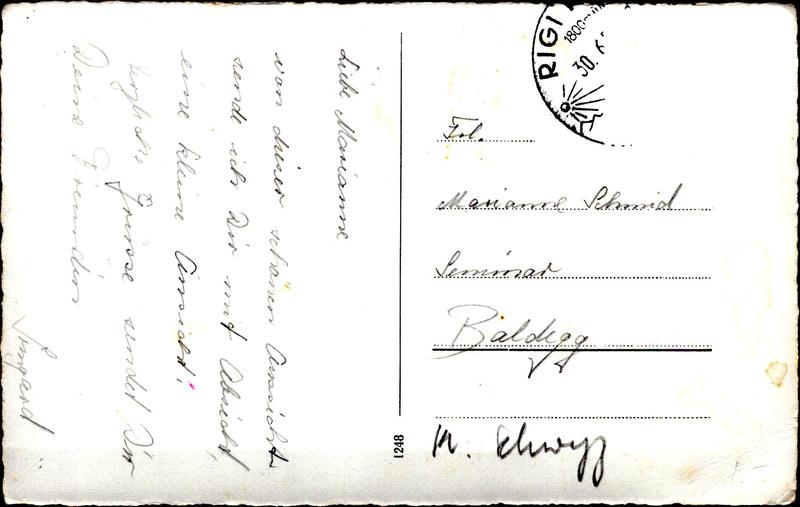 Liebe Marianne
von dieser schönen Aussicht
sende ich Dir mit Absicht
eine kleine Ansicht!
Herzliche Grüsse sendet Dir
Deine Freundin
Irmgard
RIGI
1800
30. 6.
Frl.
Marianne Schmid
Seminar
Baldegg
Kt. Schwyz
1248